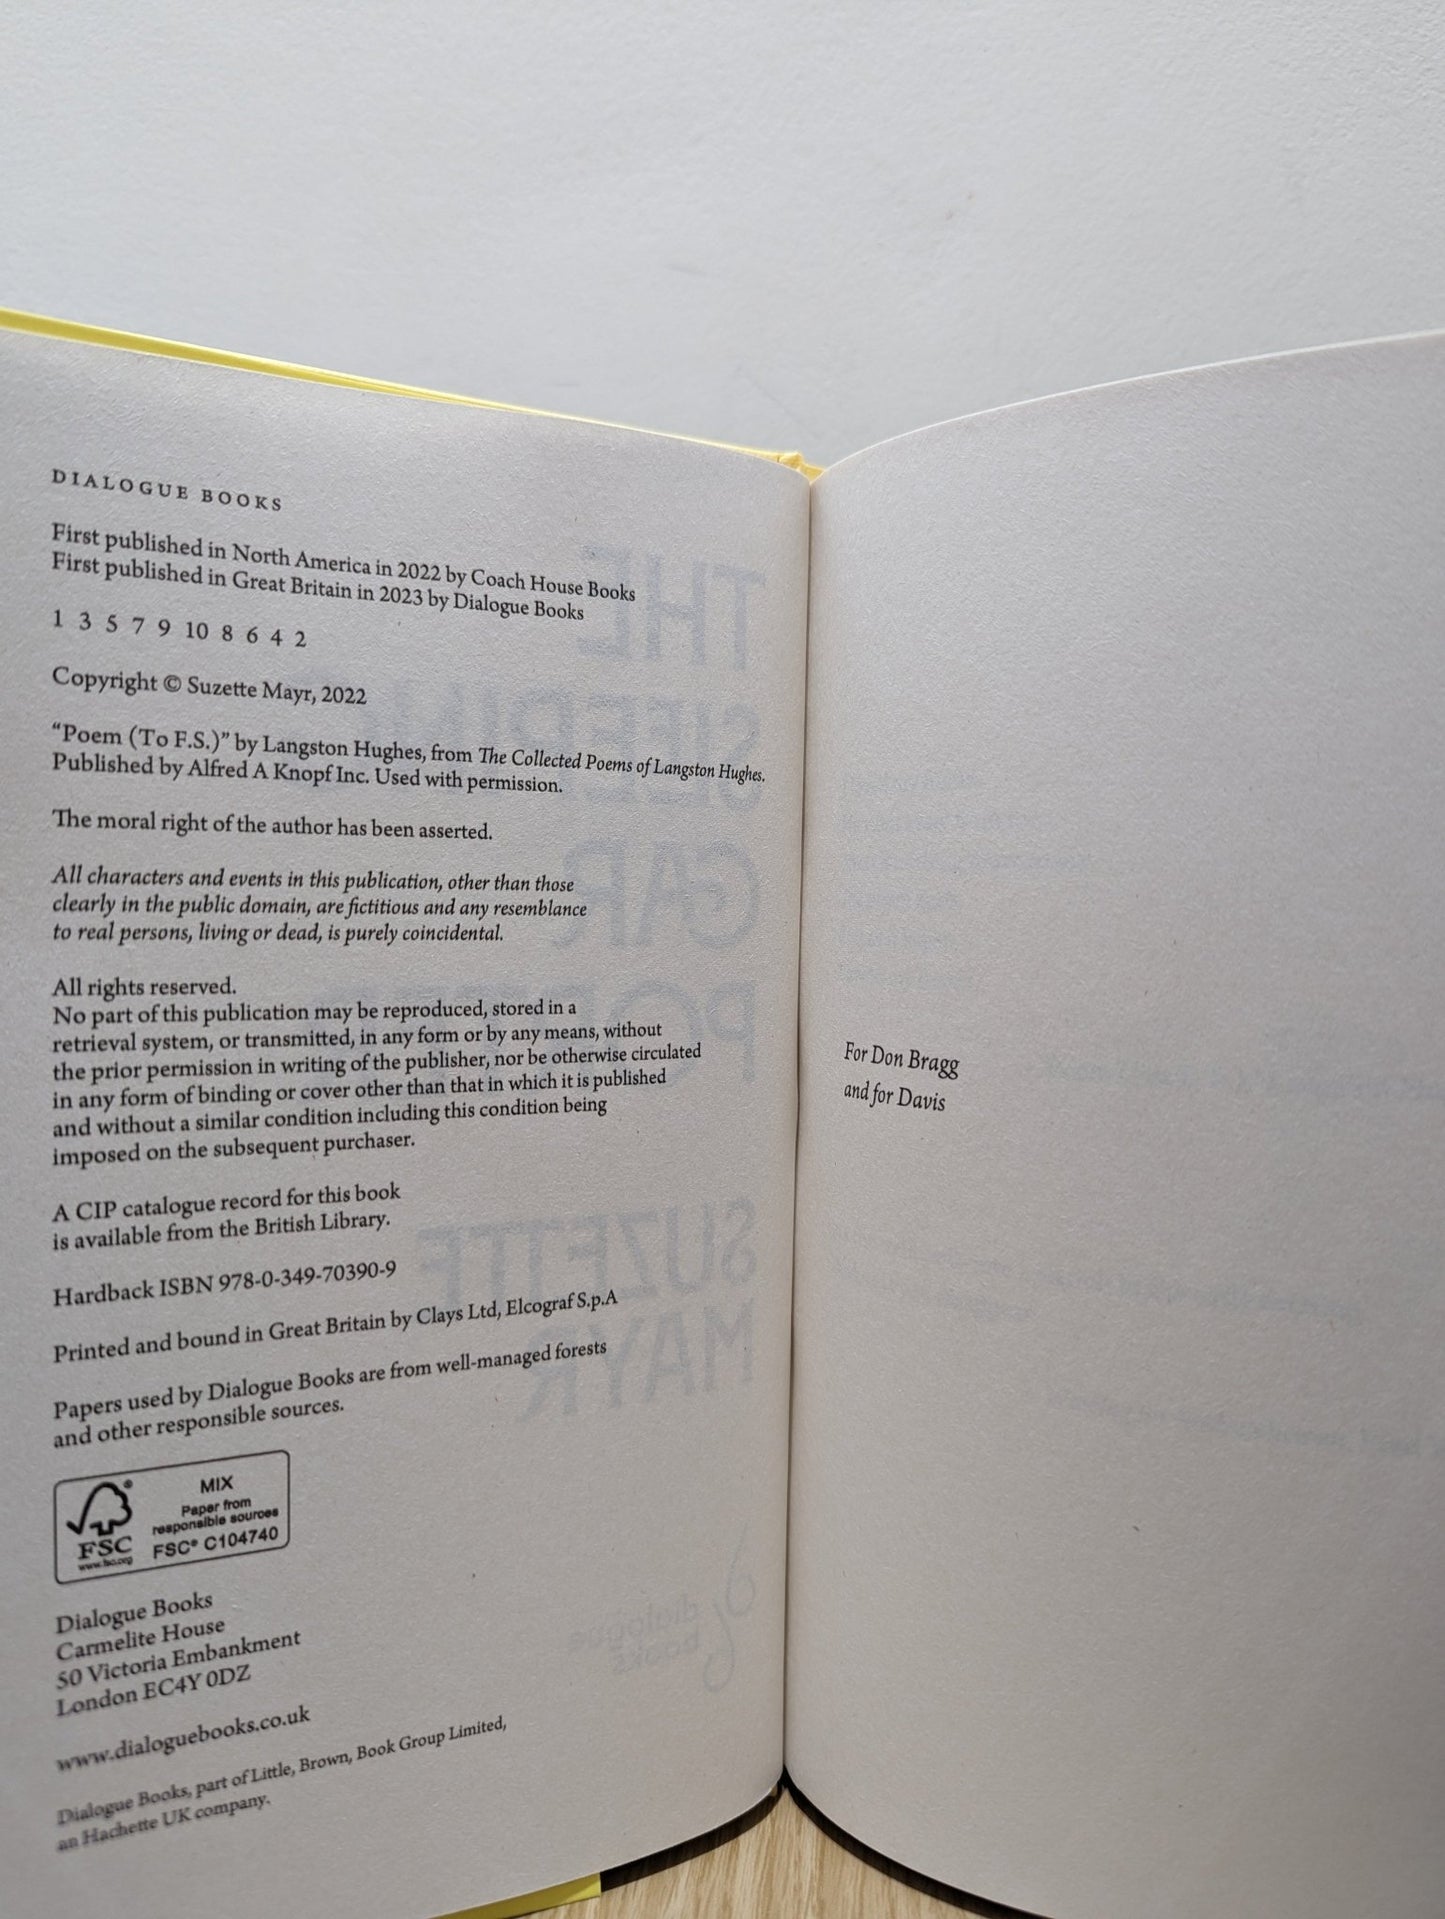 DIALOGUE BOOKS
First published in North America in 2022 by Coach House Books
First published in Great Britain in 2023 by Dialogue Books
1 3 5 7 9 10 8 6 4 2
Copyright © Suzette Mayr, 2022
“Poem (To F.S.)” by Langston Hughes, from The Collected Poems of Langston Hughes.
Published by Alfred A Knopf Inc. Used with permission.
The moral right of the author has been asserted.
All characters and events in this publication, other than those
clearly in the public domain, are fictitious and any resemblance
to real persons, living or dead, is purely coincidental.
All rights reserved.
No part of this publication may be reproduced, stored in a
retrieval system, or transmitted, in any form or by any means, without
the prior permission in writing of the publisher, nor be otherwise circulated
in any form of binding or cover other than that in which it is published
and without a similar condition including this condition being
imposed on the subsequent purchaser.
A CIP catalogue record for this book
is available from the British Library.
Hardback ISBN 978-0-349-70390-9
Printed and bound in Great Britain by Clays Ltd, Elcograf S.p.A
Papers used by Dialogue Books are from well-managed forests
and other responsible sources.
MIX
Paper from
responsible sources
FSC® C104740
FSC
www.fsc.org
Dialogue Books
Carmelite House
50 Victoria Embankment
London EC4Y 0DZ
www.dialoguebooks.co.uk
Dialogue Books, part of Little, Brown, Book Group Limited,
an Hachette UK company.
For Don Bragg
and for Davis
THE
GAR
SUZETTE
MAYR
dialogue
books